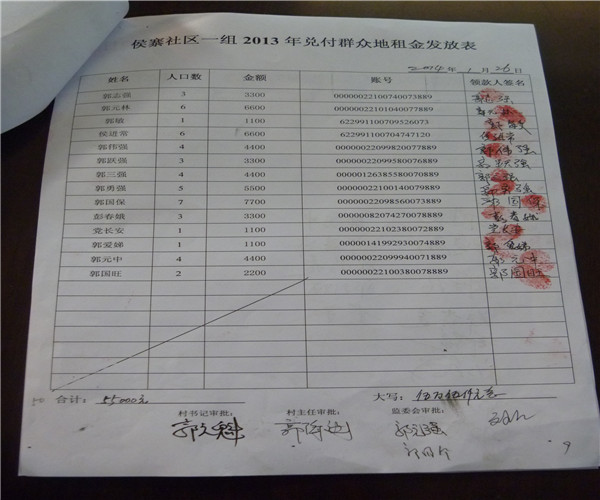 侯寨社区一组 2013 年兑付群众地租金发放表
2014 年 1 月 26 日
姓名 人口数 金额 账号 领款人签名
郭志强 3 3300 00000022100740073889
郭元林 6 6600 00000022101040077889
郭敏 1 1100 622991100709526073
侯进常 6 6600 622991100704747120
郭伟强 4 4400 00000022099820077889 郭伟强
郭跃强 3 3300 00000022099580076889 郭跃强
郭三强 4 4400 000000126385580070889
郭勇强 5 5500 00000022100140079889 郭勇强
郭国保 7 7700 00000022098560073889 郭国保
彭春娥 3 3300 000000082074270078889 彭春娥
党长安 1 1100 00000022102380072889
郭爱娣 1 1100 00000141992930074889
郭元中 4 4400 00000022099940071889 郭元中
郭国旺 2 2200 00000022100380078889 郭国旺
合计： 55000元 大写： 伍万伍仟元整
村书记审批： 村主任审批： 监委会审批：
9